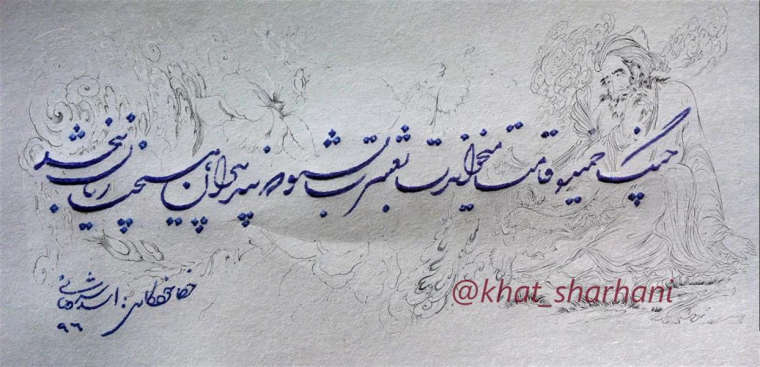 چنگ خمیده قامت میخواندت بعشرت بشنو که پند پیران هیچت زیان
شرهانی
۹۶
@khat_sharhani